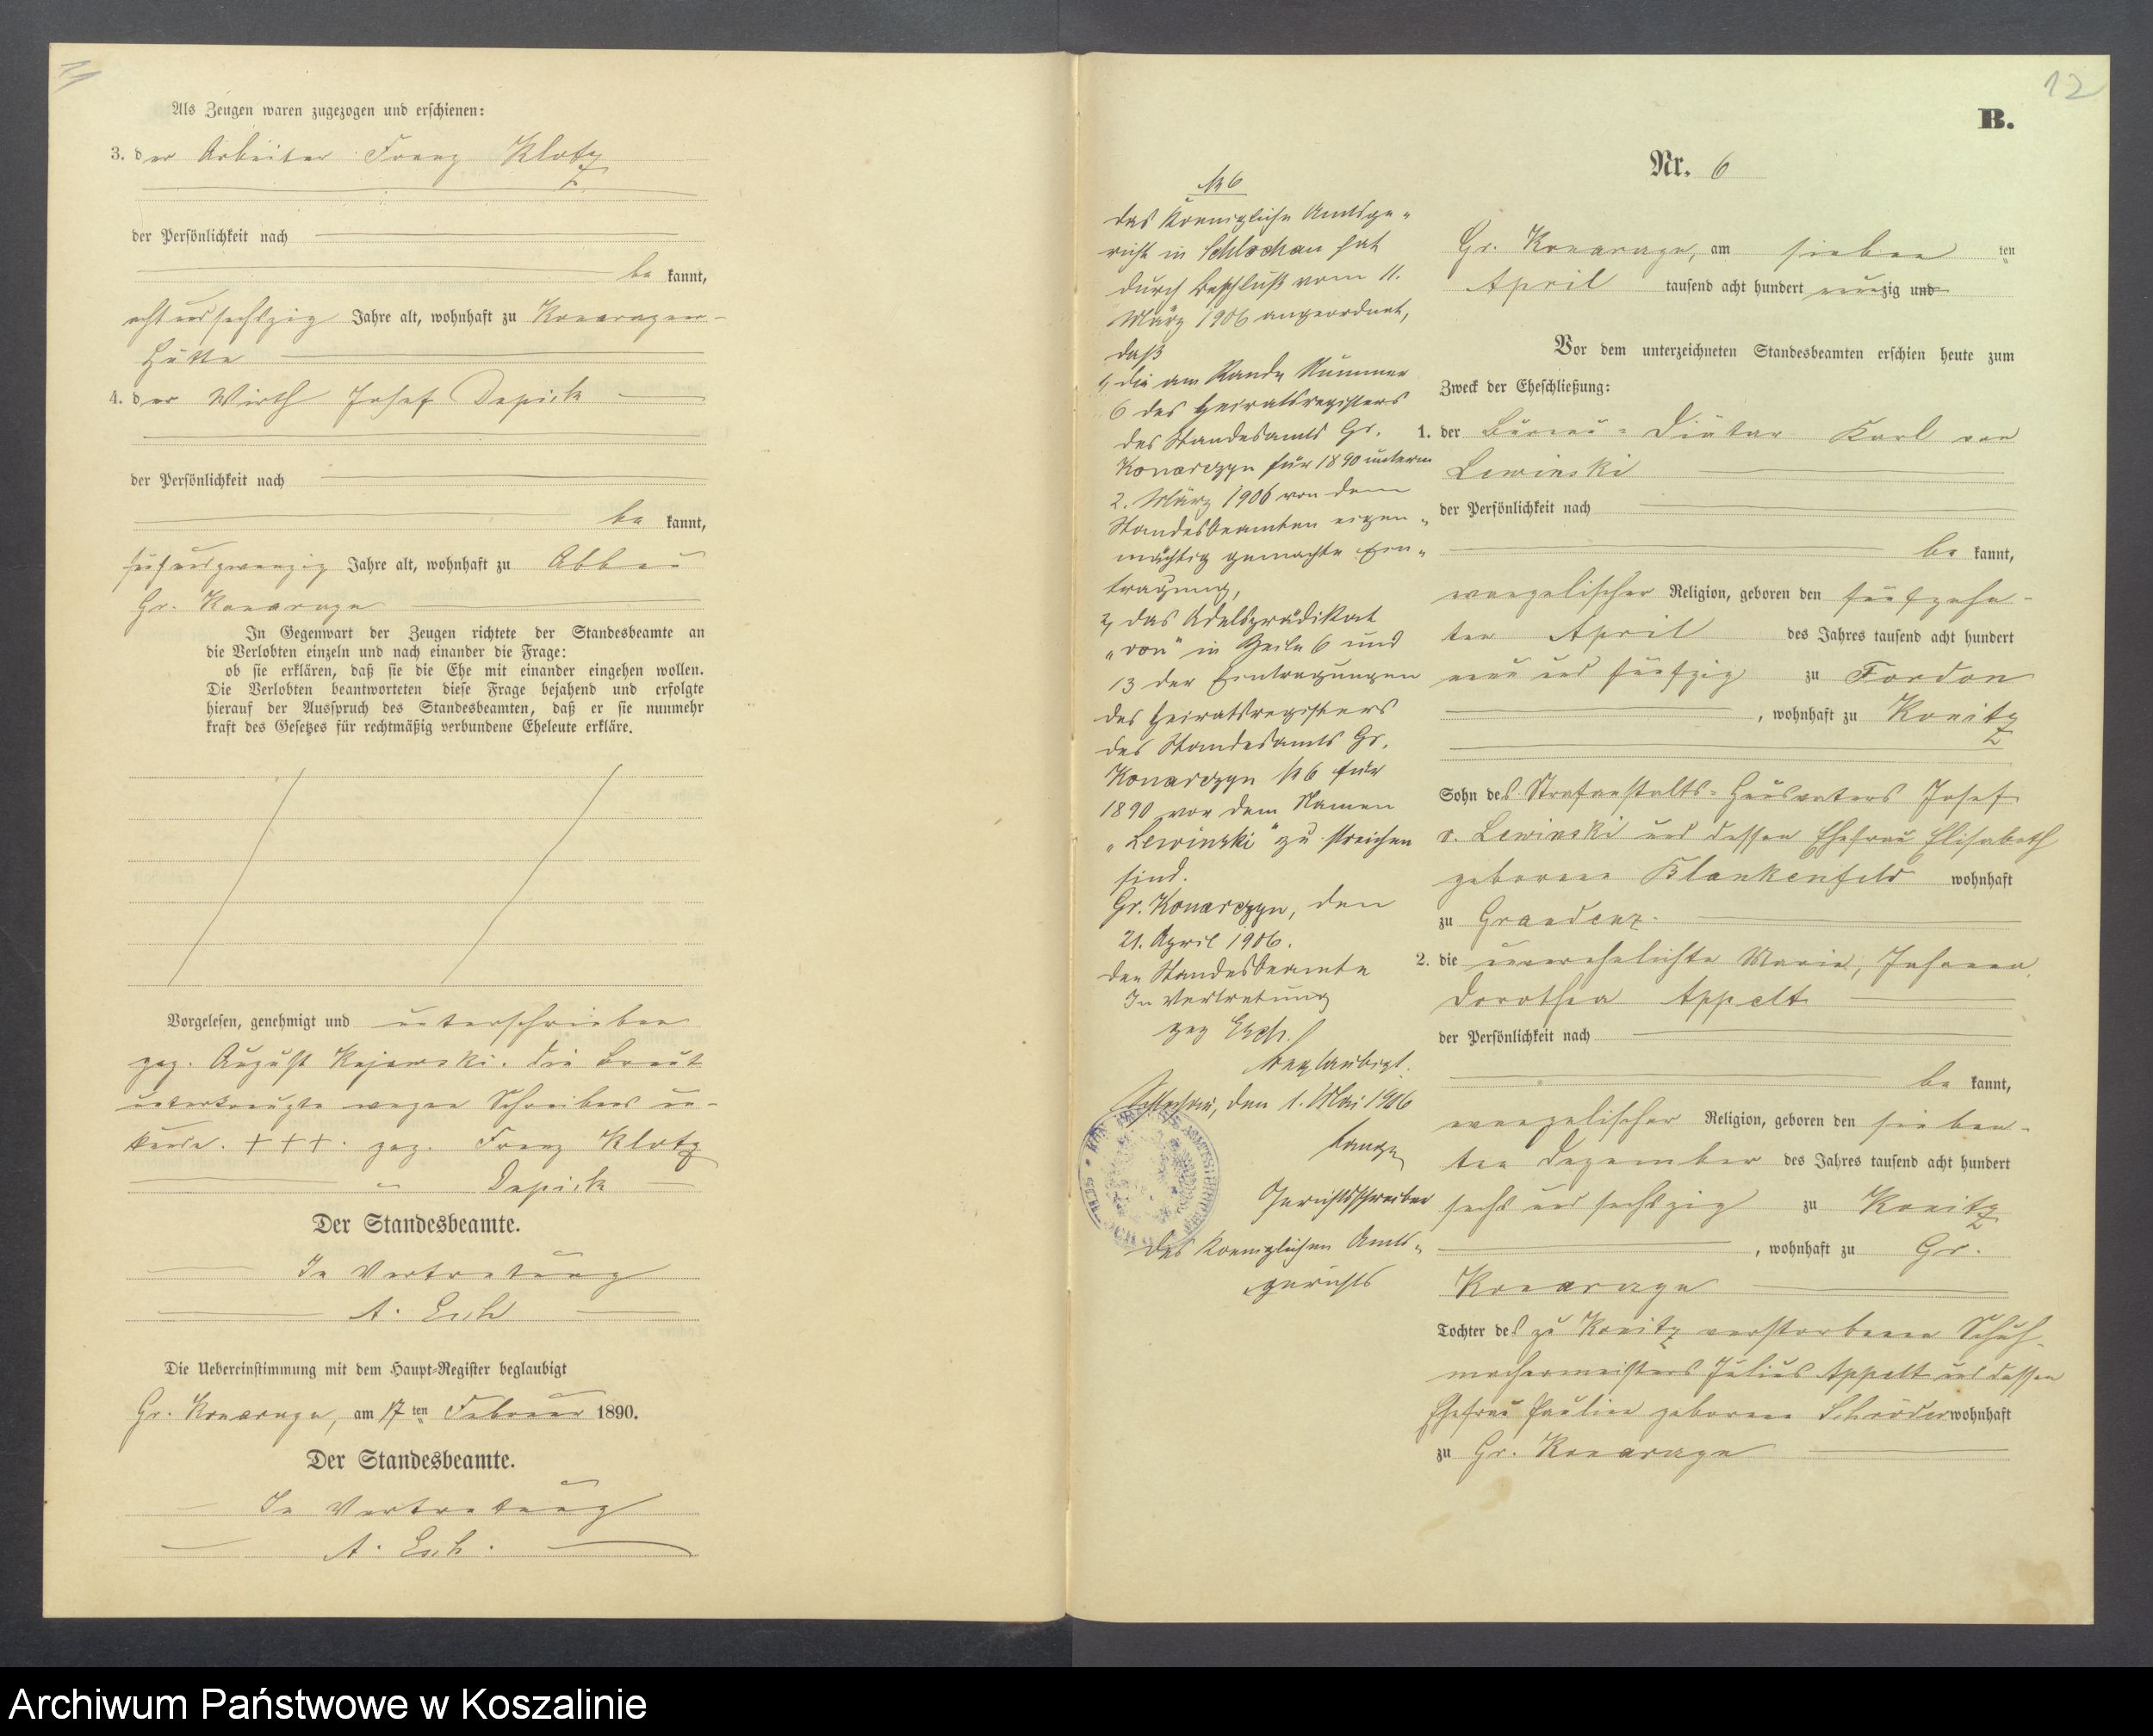 11
Als Zeugen waren zugezogen und erschienen:
3. der Arbeiter Franz Klotz
der Persönlichkeit nach
be kannt,
achtundsechszig Jahre alt, wohnhaft zu Konarczyner-
Hütte
4. der Wirth Josef Depick
der Persönlichkeit nach
be kannt,
fünfundzwanzig Jahre alt, wohnhaft zu Abbau
Gr. Konarczyn
In Gegenwart der Zeugen richtete der Standesbeamte an
die Verlobten einzeln und nach einander die Frage:
ob sie erklären, daß sie die Ehe mit einander eingehen wollen.
Die Verlobten beantworteten diese Frage bejahend und erfolgte
hierauf der Ausspruch des Standesbeamten, daß er sie nunmehr
kraft des Gesetzes für rechtmäßig verbundene Eheleute erkläre.
Vorgelesen, genehmigt und unterschrieben
gez. August Kujawski. Die Braut
unterkreuzte wegen Schreibens un-
kunde. +++. gez. Franz Klotz
" Depick
Der Standesbeamte.
In Vertretung
A. Esch
Die Uebereinstimmung mit dem Haupt-Register beglaubigt
Gr. Konarczyn, am 17 ten Februar 1890.
Der Standesbeamte.
In Vertretung
A. Esch.
12
B.
Nr. 6
№ 6
Das Koenigliche Amtsge-
richt in Schlochau hat
durch Beschluß vom 11.
März 1906 angeordnet,
daß
1, die am Rande Nummer
6 des Heiratsregisters
des Standesamts Gr.
Konarczyn für 1890 unterm
2. März 1906 von dem
Standesbeamten eigen-
mächtig gemachte Ein-
tragung,
2, das Adelsprädikat
„von“ in Zeile 6 und
13 der Eintragungen
des Heiratsregisters
des Standesamts Gr.
Konarczyn № 6 für
1890 vor dem Namen
„Lewinski“ zu streichen
sind.
Gr. Konarczyn, den
21. April 1906.
Der Standesbeamte
In Vertretung
gez Esch.
Beglaubigt.
Schlochau, den 1. Mai 1906
Gerichtsschreiber
des Koeniglichen Amts-
gerichts
Gr. Konarczyn, am sieben ten
April tausend acht hundert neunzig und
Vor dem unterzeichneten Standesbeamten erschien heute zum
Zweck der Eheschließung:
1. der Büreau-Diätar Karl von
Lewinski
der Persönlichkeit nach
be kannt,
evangelischer Religion, geboren den fünfzehn-
ten April des Jahres tausend acht hundert
neun und fünfzig zu Fordon
, wohnhaft zu Konitz
Sohn des Strafanstalts-Hausvaters Josef
v. Lewinski und dessen Ehefrau Elisabeth
geborene Blankenfeld wohnhaft
zu Graudenz.
2. die unverehelichte Marie, Johanna,
Dorothea Appelt
der Persönlichkeit nach
be kannt,
evangelischer Religion, geboren den sieben-
ten Dezember des Jahres tausend acht hundert
sechs und sechszig zu Konitz
, wohnhaft zu Gr.
Konarczyn
Tochter des zu Konitz verstorbenen Schuh-
machermeisters Julius Appelt und dessen
Ehefrau Pauline geborene Schröder wohnhaft
zu Gr. Konarczyn
Archiwum Państwowe w Koszalinie